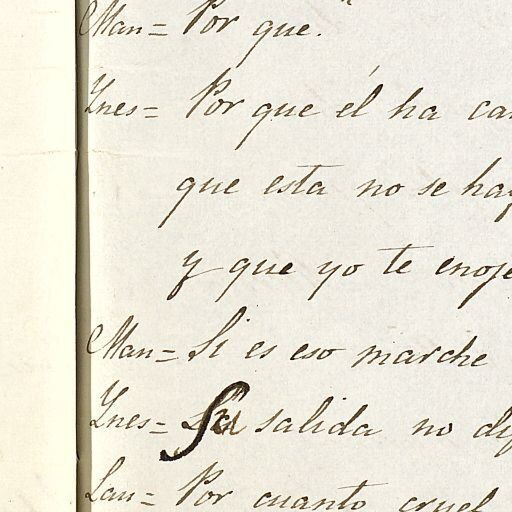 Man = Por que.
Ynes = Por que él ha
que esta no se
y que yo te enoje
Man = Si es eso marche
Ynes = Su salida no
Lau = Por cuanto cruel